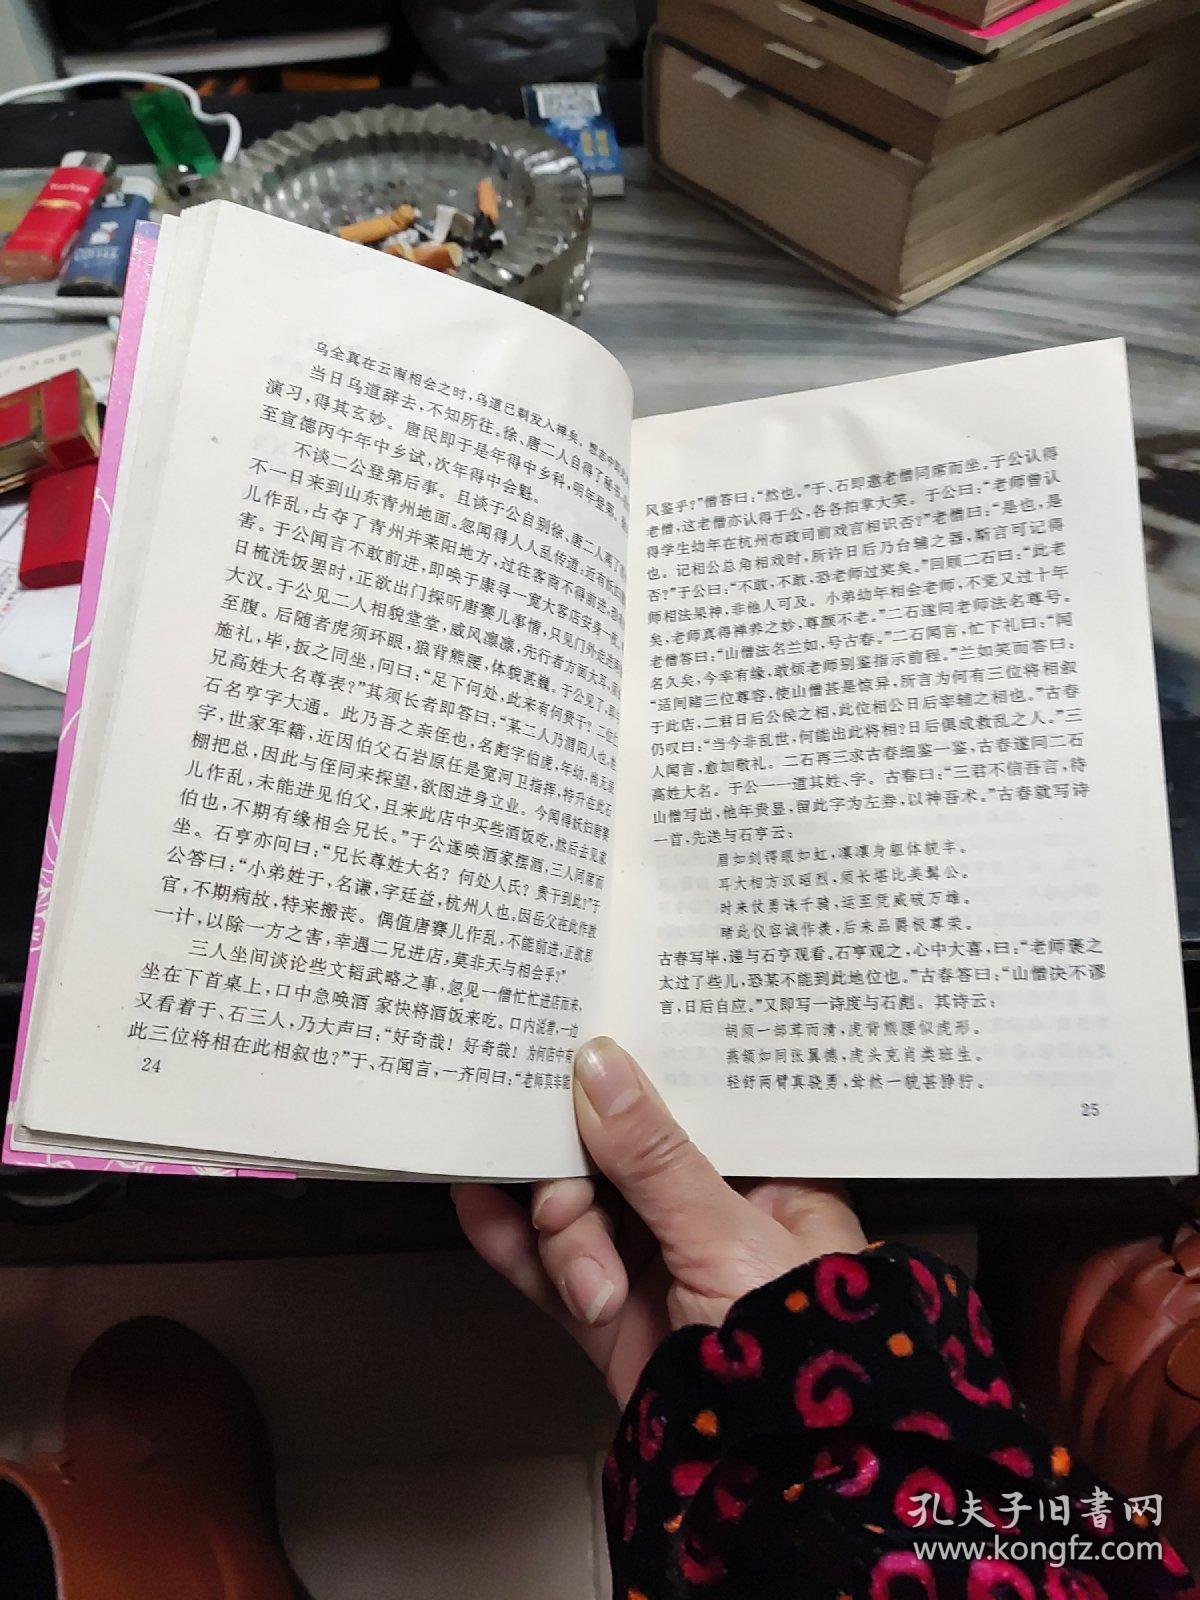 乌全真在云南相会之时，乌道已剃发入禅矣。
当日乌道辞去，不知所往。徐、唐二人自得了秘书，
演习，得其玄妙。唐民即于是年得中乡科，明年登第。
至宣德丙午年中乡试，次年得中会魁。
不谈二公登第后事。且谈于公自别徐、唐二人，离了
不一日来到山东青州地面。忽闻得人人乱传道：近有妖妇唐赛
儿作乱，占夺了青州并莱阳地方，过往客商不得前进，恐有
害。于公闻言不敢前进，即唤于康寻一宽大客店安身一夜。
日梳洗饭罢时，正欲出门探听唐赛儿事情，只见门外走进两个
大汉。于公见二人相貌堂堂，威风凛凛，先行者方面大耳，
至腹。后随者虎须环眼，狼背熊腰，体貌甚巍。于公见了，即
施礼，毕，扳之同坐，问曰：“足下何处，此来有何贵干？二位仁
兄高姓大名尊表？”其须长者即答曰：“某二人乃渭阳人也，姓
石名亨字大通。此乃吾之亲侄也，名彪字伯虎，年幼，尚无
字，世家军籍，近因伯父石岩原任是宽河卫指挥，特升在此石
棚把总，因此与侄同来探望，欲图进身立业。今闻得妖妇唐赛
儿作乱，未能进见伯父，且来此店中买些酒饭吃，然后去见家
伯也，不期有缘相会兄长。”于公遂唤酒家摆酒，三人同席而
坐。石亨亦问曰：“兄长尊姓大名？何处人氏？贵干到此？”于
公答曰：“小弟姓于，名谦，字廷益，杭州人也。因岳父在此作教
官，不期病故，特来搬丧。偶值唐赛儿作乱，不能前进，正欲思
一计，以除一方之害，幸遇二兄进店，莫非天与相会乎？”
三人坐间谈论些文韬武略之事，忽见一僧忙忙进店而来，
坐在下首桌上，口中急唤酒 家快将酒饭来吃。口内说着，一边
又看着于、石三人，乃大声曰：“好奇哉！好奇哉！为何店中有
此三位将相在此相叙也？”于、石闻言，一齐问曰：“老师莫非能
24
风鉴乎？”僧答曰：“然也。”于、石即邀老僧同席而坐。于公认得
老僧，这老僧亦认得于公，各各拍掌大笑。于公曰：“老师曾认
得学生幼年在杭州布政司前戏言相识否？”老僧曰：“是也，是
也。记相公总角相戏时，所许日后乃台辅之器，斯言可记得
否？”于公曰：“不敢，不敢，恐老师过奖矣。”回顾二石曰：“此老
师相法果神，非他人可及。小弟幼年相会老师，不觉又过十年
矣，老师真得禅养之妙，尊颜不老。”二石遂问老师法名尊号。
老僧答曰：“山僧法名兰如，号古春。”二石闻言，忙下礼曰：“闻
名久矣，今幸有缘，敢烦老师别鉴指示前程。”兰如笑而答曰：
“适间睹三位尊容，使山僧甚是惊异，所言为何有三位将相叙
于此店，二君日后公侯之相，此位相公日后宰辅之相也。”古春
仍叹曰：“当今非乱世，何能出此将相？日后俱成救乱之人。”三
人闻言，愈加敬礼。二石再三求古春细鉴一鉴，古春遂问二石
高姓大名。于公一一道其姓、字。古春曰：“三君不信吾言，待
山僧写出，他年贵显，留此字为左券，以神吾术。”古春就写诗
一首，先送与石亨云：
眉如剑锷眼如虹，凛凛身躯体貌丰。
耳大相方汉昭烈，须长堪比美髯公。
时来仗勇诛千骑，运至凭威破万雄。
睹此仪容诚作羡，后来品爵极尊荣。
古春写毕，递与石亨观看。石亨观之，心中大喜，曰：“老师褒之
太过了些儿，恐某不能到此地位也。”古春答曰：“山僧决不谬
言，日后自应。”又即写一诗度与石彪。其诗云：
胡须一部茸而清，虎背熊腰似虎形。
燕颔如同张翼德，虎头克肖类班生。
轻舒两臂真骁勇，耸然一貌甚狰狞。
25
孔夫子旧書网
www.kongfz.com